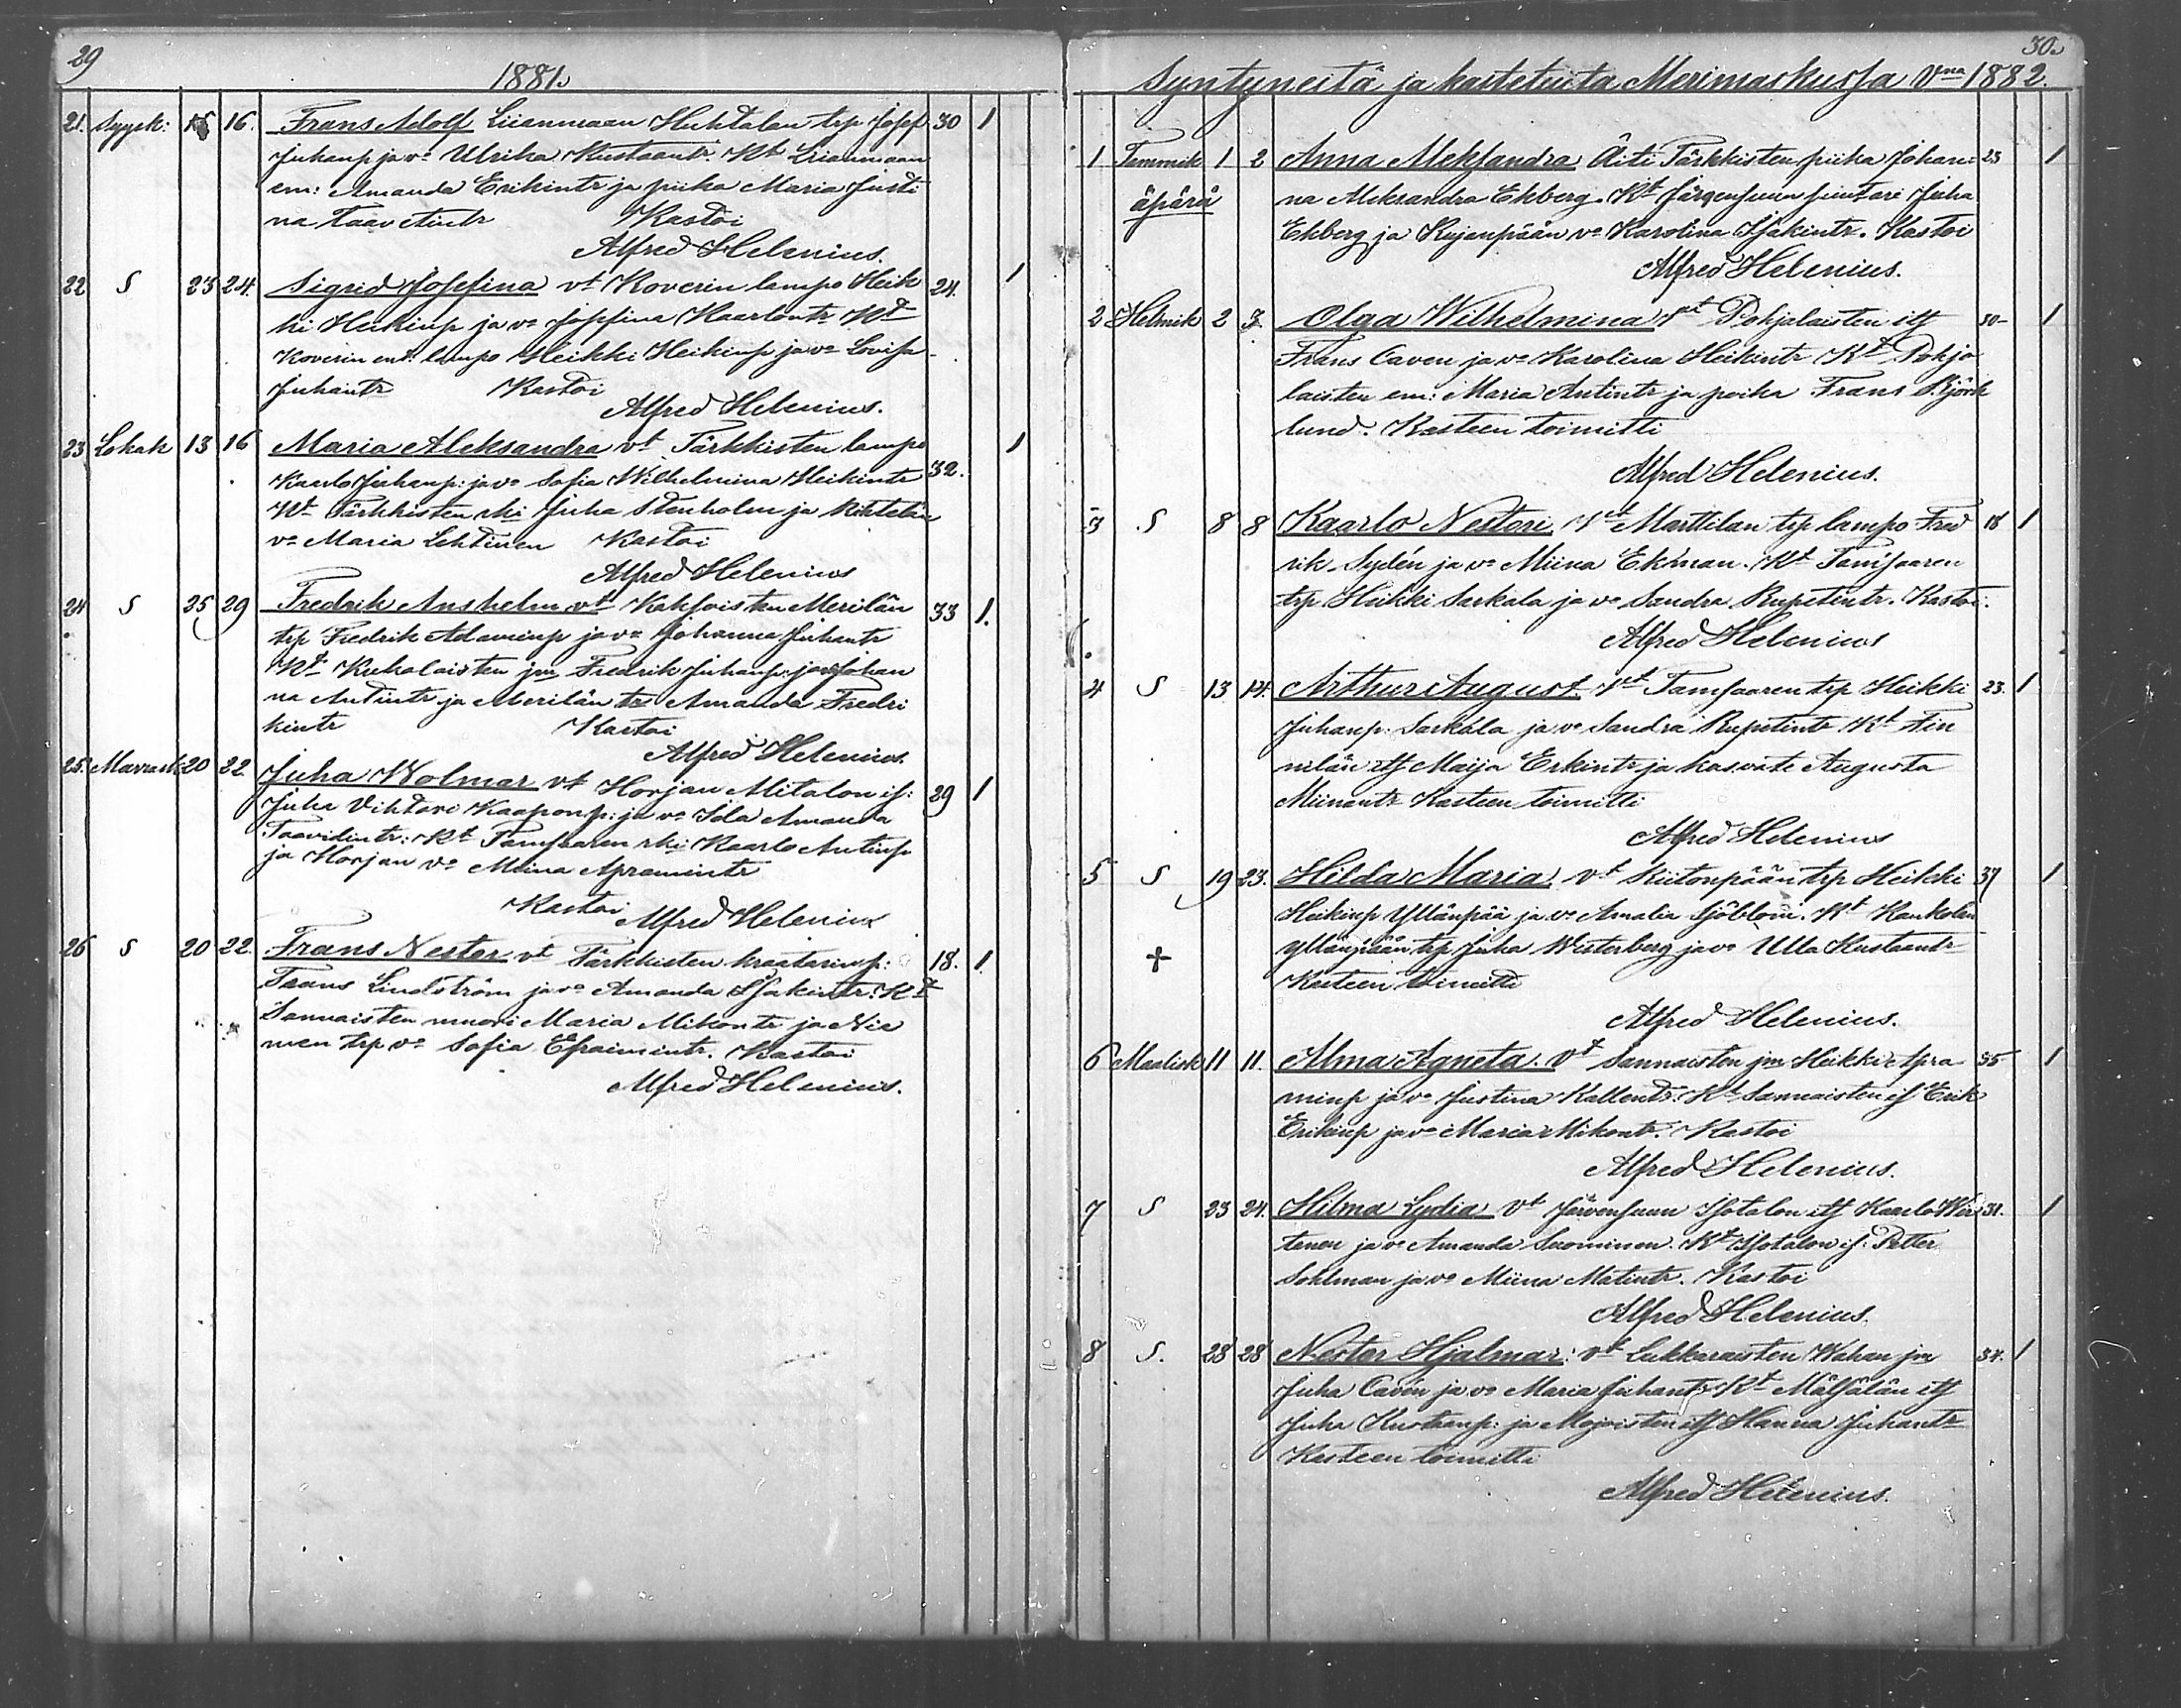 29
1881.
21. Syysk: 15 16. Frans Adolf Liianmaan Huhtalan trp Josef 30 1
Juhanp ja vo Ulrika Kustaantr. Kt Liianmaan
em: Amanda Erikintr ja piika Maria Justi
na Taavetintr Kastoi
Alfred Helenius.
22 S 23 24. Sigrid Josefina vt Koverin lampo Heik 24. 1
ki Heikinp ja vo Josefina Kaarlontr Kt
Koverin ent: lampo Heikki Heikinp ja vo Lovisa
Juhantr Kastoi
Alfred Helenius.
23 Lokak 13 16 Maria Aleksandra vt Tärkkisten lampo 1
Kaarlo Juhanp: ja vo Sofia Wilhelmina Heikintr 32.
Kt Tärkkisten rki Juha Stenholm ja
vo Maria Lehtinen Kastoi
Alfred Helenius
24 S 25 29 Fredrik Anshelm vt Kahloisten Merilän 33 1.
trp Fredrik Adaminp ja vo Johanna Juhantr
Kt Kukolaisten jm Fredrik Juhanp: ja vo Johan
na Antintr ja Merilän tr Amanda Fredri
kintr Kastoi
Alfred Helenius.
25. Marrask 20 22. Juha Wolmar vt Horjan Mitalon is: 29 1
Juha Vihtori Kaaponp: ja vo Ida Amanda
Taavidintr: Kt Tamsaaren rki Kaarlo Antinp
ja Horjan vo Miina Apramintr
Kastoi Alfred Helenius
26 S 20 22. Frans Nestor vt Tärkkisten kraatarinp: 18. 1.
Frans Lindström ja vo Amanda Isakintr: Kt
Sannaisten muori Maria Mikontr ja Nie
men trp vo Sofia Efraimintr. Kastoi
Alfred Helenius.
30.
Syntyneitä ja kastetuita Merimaskussa Vna 1882.
1 Tammik 1 2 Anna Aleksandra Äiti Tärkkisten piika Johan= 23 1
äpärä na Aleksandra Ekberg. Kt Järvensuun Juha
Ekberg ja Kujanpään vo Karolina Isakintr. Kastoi
Alfred Helenius.
2 Helmik 2 3. Olga Wilhelmina Vt Pohjalaisten its 30- 1
Frans Caven ja vo Karolina Heikintr Kt Pohja
laisten em: Maria Antintr ja poika Frans Björk
lund. Kasteen toimitti
Alfred Helenius.
3 S 8 8 Kaarlo Nestori Vt Marttilan trp lampo Fred 18 1
rik Sydén ja vo Miina Ekman. Kt Tamsaaren
trp Heikki Sarkala ja vo Sandra Rupetintr. Kastoi.
Alfred Helenius
4 S 13 14. Arthur August Vt Tamsaaren trp Heikki 23. 1
Juhanp: Sarkala ja vo Sandra Rupetintr Kt Fin
nilän its Maija Erkintr ja kasvate Augusta
Miinantr Kasteen toimitti
Alfred Helenius
5 S 19 23. Hilda Maria Vt Kiitonpään trp Heikki 37 1
Heikinp Yllänpää ja vo Amalia Sjöblom. Kt Kankolan
+ Yllänpään trp Juha Westerberg ja vo Ulla Kustaantr
Kasteen toimitti
Alfred Helenius.
6 Maalisk 11 11. Alma Agneta. Vt Sannaisten jm Heikki Apra 35 1
minp ja vo Justina Kallentr: Kt Sannaisten is Erik
Erikinp ja vo Maria Mikontr. Kastoi
Alfred Helenius.
7 S 23 24. Hilma Lydia Vt Järvensuun Isotalon its Kaarlo Wir 31. 1
tanen ja vo Amanda Suominen. Kt Isotalon is: Petter
Sohlman ja vo Miina Matintr. Kastoi
Alfred Helenius.
8 S. 28 28 Nestor Hjalmar: Vt Lukkaraisten Wahan jm 34. 1
Juha Cavén ja vo Maria Juhantr Kt its
Juha Kustaanp: ja Mojoisten its Hanna Juhantr
Kasteen toimitti
Alfred Helenius.